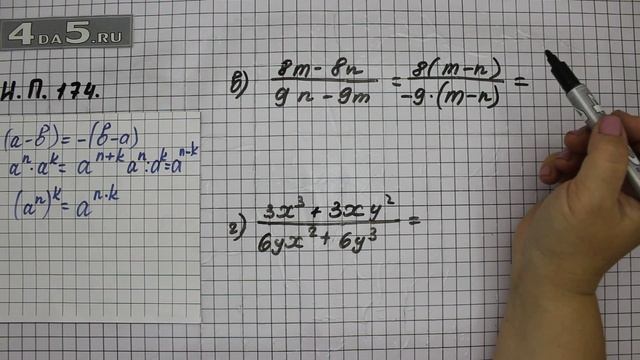 4DA5.RU
И.П. 174.
(a-b)=-(b-a)
aⁿ·aᵏ=aⁿ⁺ᵏ aⁿ:aᵏ=aⁿ⁻ᵏ
(aⁿ)ᵏ=aⁿ·ᵏ
в) (8m-8n)/(9n-9m) = 8(m-n)/(-9·(m-n)) =
г) (3x³+3xy²)/(6yx²+6y³) =